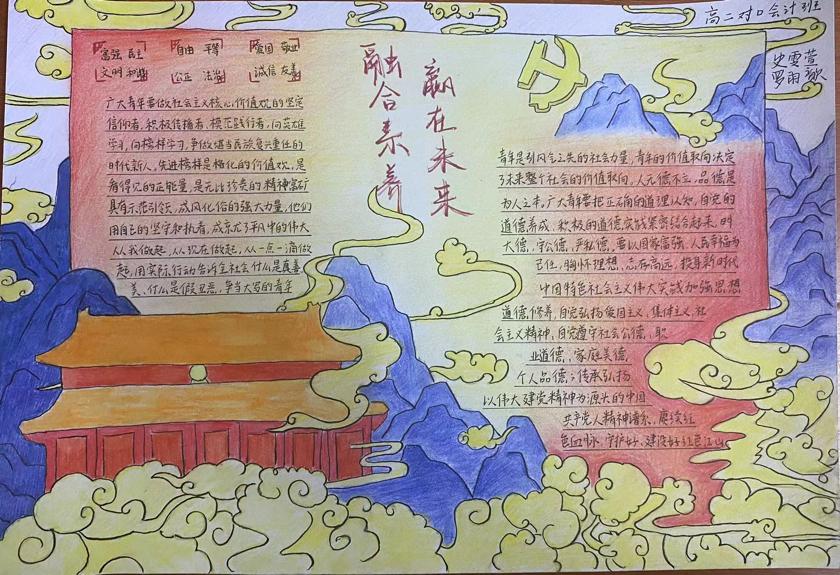 高二对口会计班
史雯萱
罗雨歆
富强 民主
自由 平等
爱国 敬业
文明 和谐
公正 法治
诚信 友善
融合素养
赢在未来
广大青年要做社会主义核心价值观的坚定
信仰者、积极传播者、模范践行者,向英雄
学习,向榜样学习,争做堪当民族复兴重任的
时代新人,先进榜样是格化的价值观,是
看得见的正能量,是无比珍贵的精神富矿
具有示范引领、成风化俗的强大力量,他们
用自己的坚守和执着,成就了平凡中的伟大
从我做起,从现在做起,从一点一滴做
起,用实际行动告诉全社会什么是真善
美、什么是假丑恶,争当大写的青年
青年是引风气之先的社会力量,青年的价值取向决定
了未来整个社会的价值取向,人无德不立,品德是
为人之本,广大青年要把正确的道理认知、自觉的
道德养成、积极的道德实践紧密结合起来,明
大德,守公德,严私德,要以国家富强、人民幸福为
己任,胸怀理想、志存高远,投身新时代
中国特色社会主义伟大实践加强思想
道德修养,自觉弘扬爱国主义、集体主义、社
会主义精神,自觉遵守社会公德、职
业道德、家庭美德、
个人品德;传承弘扬
以伟大建党精神为源头的中国
共产党人精神谱系,赓续红
色血脉,守护好、建设好红色江山